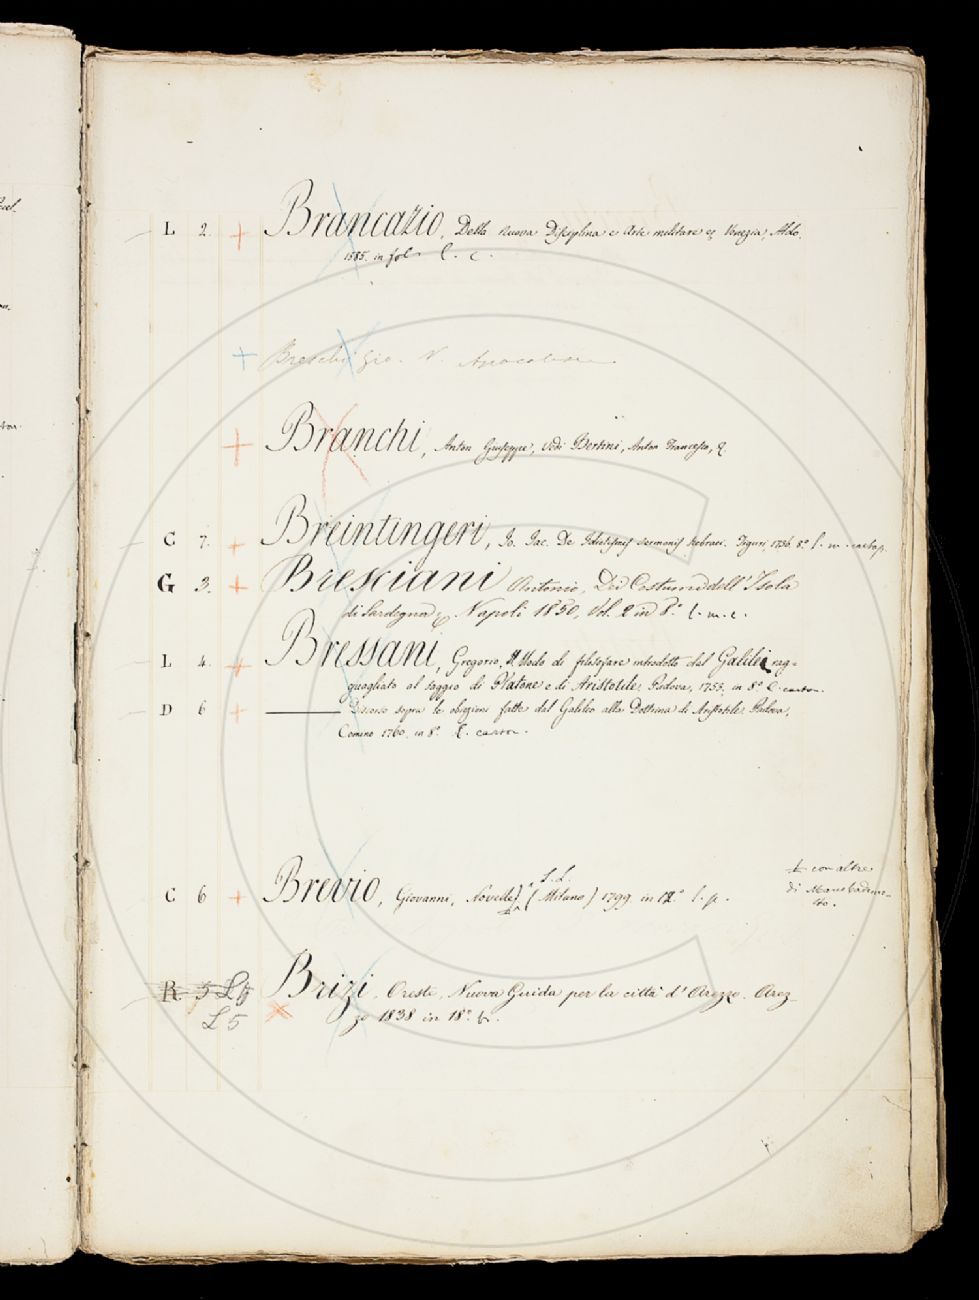 L 2. + Brancazio, Della nuova Disciplina e Arte militare &. Venezia, Aldo,
1585. in fol. l. c.
+ Breschi Gio. V.
+ Branchi, Anton Giuseppe, vedi Bertini, Anton Francesco, &.
C 7. + Breintingeri, Jo. Jac. De Idiotismis sermonis hebraei. Tiguri, 1736. 8.°
G 3. + Bresciani Antonio, Dei Costumi dell' Isola
di Sardegna &. Napoli 1850, Vol. 2 in 8.° l. m. c.
L 4. + Bressani, Gregorio, Il Modo di filosofare introdotto dal Galilei rag-
guagliato al saggio di Platone e di Aristotile, Padova, 1753, in 8° l. carton.
D 6 + ——— Discorso sopra le obiezioni fatte dal Galileo alla Dottrina di Aristotile, Padova,
Comino 1760, in 8.° l. carton.
C 6 + Brevio, Giovanni, Novelle, (Milano) 1799 in 12.° l. p.
con altre
di
R 5 L 5 Brizi, Oreste, Nuova Guida per la città d' Arezzo. Arez-
L 5 zo 1838 in 18.°